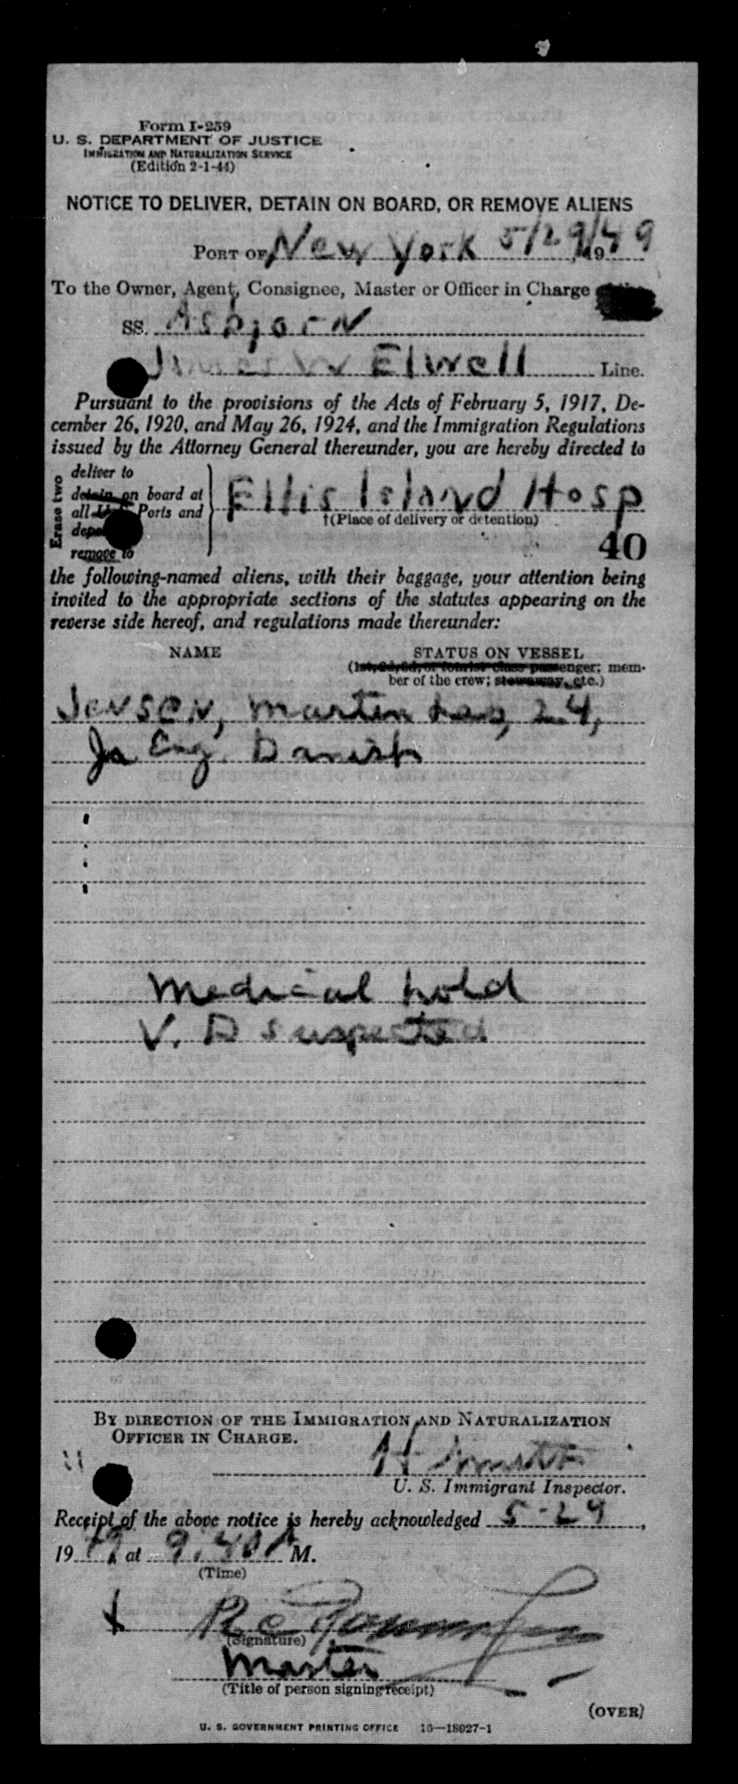 Form I-259
U. S. DEPARTMENT OF JUSTICE
IMMIGRATION AND NATURALIZATION SERVICE
(Edition 2-1-44)
NOTICE TO DELIVER, DETAIN ON BOARD, OR REMOVE ALIENS
PORT OF New York 5/29/49
To the Owner, Agent, Consignee, Master or Officer in Charge
SS. Asbjorn
James W Elwell Line.
Pursuant to the provisions of the Acts of February 5, 1917, De-
cember 26, 1920, and May 26, 1924, and the Immigration Regulations
issued by the Attorney General thereunder, you are hereby directed to
Erase two
deliver to
detain on board at
all U.S. Ports and
remove to
Ellis Island Hosp
†(Place of delivery or detention)
40
the following-named aliens, with their baggage, your attention being
invited to the appropriate sections of the statutes appearing on the
reverse side hereof, and regulations made thereunder:
NAME STATUS ON VESSEL
(1st, 2d, 3d, or tourist class passenger; mem-
ber of the crew; stowaway, etc.)
Jensen, Marten 24,
Jr Eng. Danish
Medical hold
V. D suspected
BY DIRECTION OF THE IMMIGRATION AND NATURALIZATION
OFFICER IN CHARGE.
H
U. S. Immigrant Inspector.
Receipt of the above notice is hereby acknowledged 5-29,
1949, at 9:40A M.
(Time)
R C
(Signature)
Master
(Title of person signing receipt)
(OVER)
U. S. GOVERNMENT PRINTING OFFICE 16—18027-1